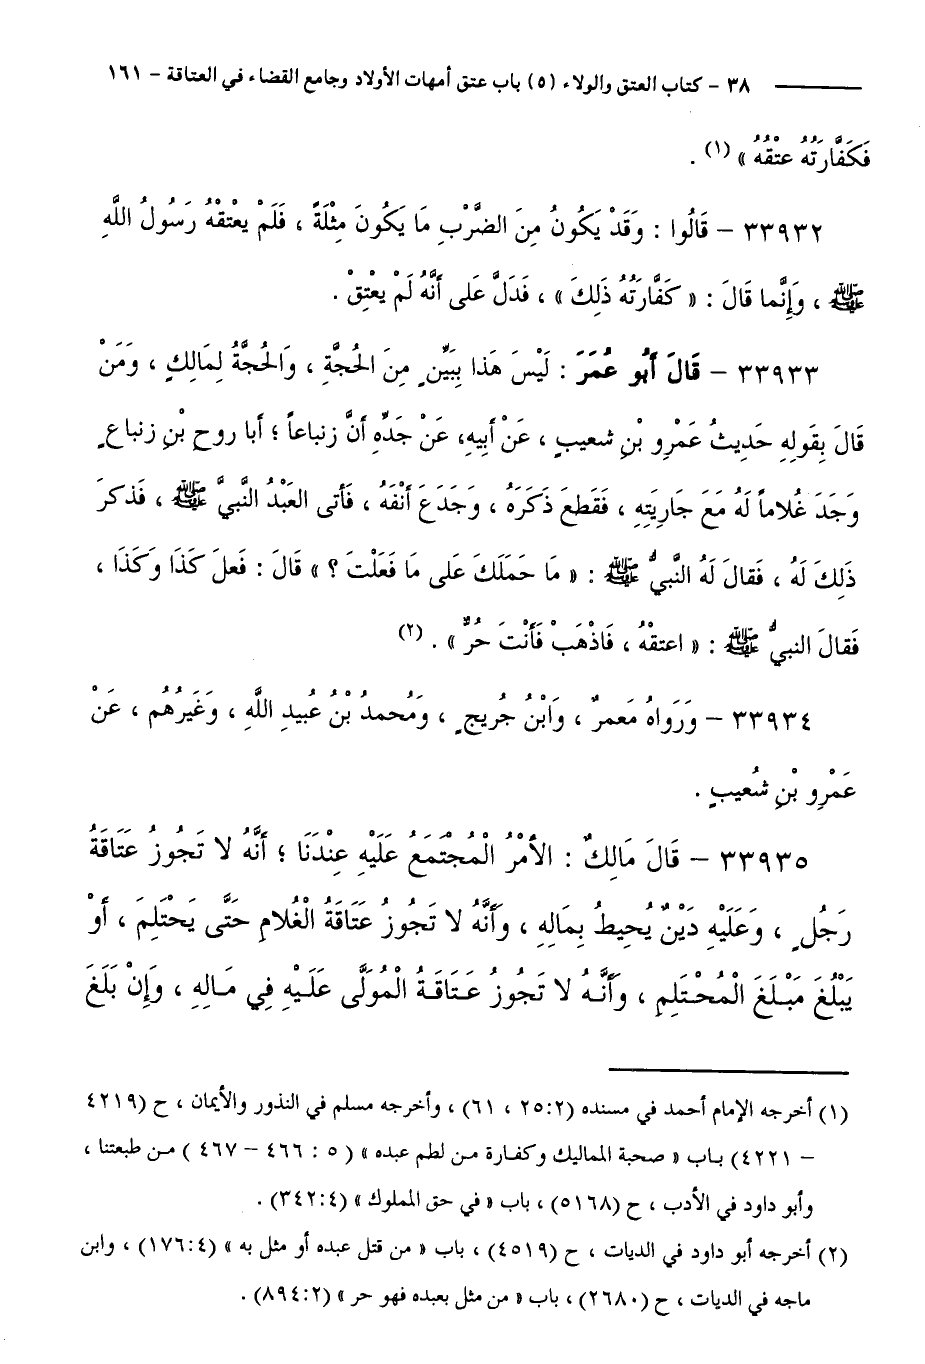 ٣٨ - كتاب العتق والولاء (٥) باب عتق أمهات الأولاد وجامع القضاء في العتاقة - ١٦١
فَكَفَّارَتُهُ عتْقُهُ » (١) .
٣٣٩٣٢ - قَالُوا : وَقَدْ يَكُونُ مِنَ الضَّرْبِ مَا يَكُونَ مِثْلَةً ، فَلَمْ يعْتقْهُ رَسُولُ اللَّهِ
ﷺ ، وَإِنَّما قَالَ : « كَفَّارَتُهُ ذَلِكَ » ، فَدَلَّ عَلى أَنَّهُ لَمْ يعْتِقْ .
٣٣٩٣٣ - قَالَ أَبُو عُمَرَ : لَيْسَ هَذا بِبَيِّنٍ مِنَ الحُجَّةِ ، وَالحُجَّةُ لِمَالِكٍ ، وَمَنْ
قَالَ بِقَولِهِ حَدِيثُ عَمْرِو بْنِ شعيبٍ ، عَنْ أَبِيهِ، عَنْ جَدِّهِ أَنَّ زنباعاً ؛ أبا روح بْنِ زنباعٍ
وَجَدَ غُلاماً لَهُ مَعَ جَارِيَتِهِ ، فَقَطعَ ذَكَرَهُ ، وَجَدَعَ أَنْفَهُ ، فَأتى العَبْدُ النَّبيَّ ﷺ ، فَذكرَ
ذَلِكَ لَهُ ، فَقالَ لَهُ النَّبيُّ ﷺ : « مَا حَمَلَكَ عَلى مَا فَعَلْتَ ؟ » قَالَ : فَعلَ كَذَا وَكَذَا ،
فَقالَ النبيُّ ﷺ : « اعتقْهُ ، فَاذْهَبْ فَأَنْتَ حُرٌّ » . (٢)
٣٣٩٣٤ - وَرَوَاهُ مَعمرٌ ، وَابْنُ جُريجٍ ، وَمُحمدُ بْنُ عُبيدِ اللَّهِ ، وَغَيرُهُم ، عَنْ
عَمْرِو بْنِ شُعيبٍ .
٣٣٩٣٥ - قَالَ مَالِكٌ : الأمْرُ الْمُجْتَمَعُ عَلَيْهِ عِنْدَنَا ؛ أَنَّهُ لا تَجُوزُ عَتَاقَةُ
رَجُلٍ ، وَعَلَيْهِ دَيْنٌ يُحِيطُ بِمَالِهِ ، وَأَنَّهُ لا تَجُوزُ عتَاقَةُ الْغُلامِ حَتَّى يَحْتَلِمَ ، أَوْ
يَبْلُغَ مَبْلَغَ الْمُحْتَلِمِ ، وَأَنَّهُ لا تَجُوزُ عَتَاقَةُ الْمُوَلَّى عَلَيْهِ فِي مَالِهِ ، وَإِنْ بَلَغَ
(١) أخرجه الإمام أحمد في مسنده (٢:٢٥ ، ٦١) ، وأخرجه مسلم في النذور والأيمان ، ح (٤٢١٩
- ٤٢٢١) باب « صحبة المماليك وكفارة من لطم عبده » ( ٥ : ٤٦٦ - ٤٦٧ ) من طبعتنا ،
وأبو داود في الأدب ، ح (٥١٦٨) ، باب « في حق المملوك » (٤:٣٤٢) .
(٢) أخرجه أبو داود في الديات ، ح (٤٥١٩) ، باب « من قتل عبده أو مثل به » (٤:١٧٦) ، وابن
ماجه في الديات ، ح (٢٦٨٠) ، باب « من مثل بعبده فهو حر » (٢:٨٩٤) .